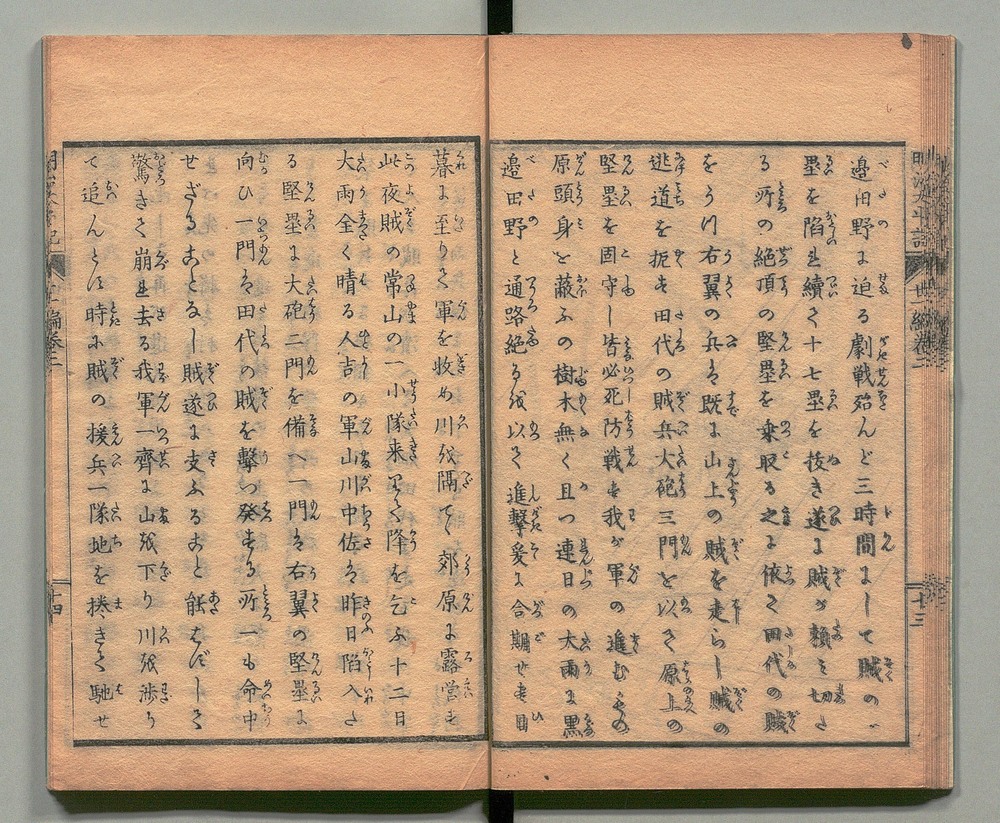 邊田野に迫る劇戦殆んど三時間にして賊の
塁を陥れ續て十七塁を抜き遂に賊が頼み切た
る所の絶頂の堅塁を乗取る之に依て田代の賊
をうけ右翼の兵は既に山上の賊を走らし賊の
逃道を扼す田代の賊兵大砲三門を以て原上の
堅塁を固守し皆必死防戦す我が軍の進むもの
原頭身を蔽ふの樹木無く且つ連日の大雨に黒
邊田野と通路絶るを以て進撃爰に合期せず日
暮に至りて軍を收め川を隔て郊原に露営す
此夜賊の常山の一小隊来りて降を乞ふ十二日
大雨全く晴る人吉の軍山川中佐は昨日陥入た
る堅塁に大砲二門を備へ一門は右翼の堅塁に
向ひ一門は田代の賊を撃つ発する所一も命中
せざることなし賊遂に支ふること能はずして
驚きて崩れ去る我軍一齊に山を下り川を渉り
て追んとす時に賊の援兵一隊地を捲きて馳せ